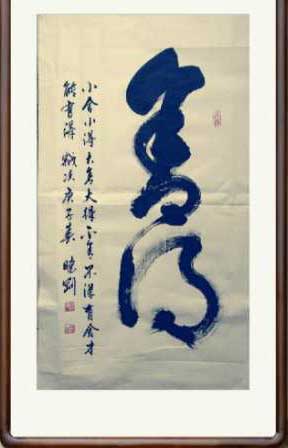 舍得
小舍小得大舍大得不舍不得有舍才
能有得 歲次庚子春